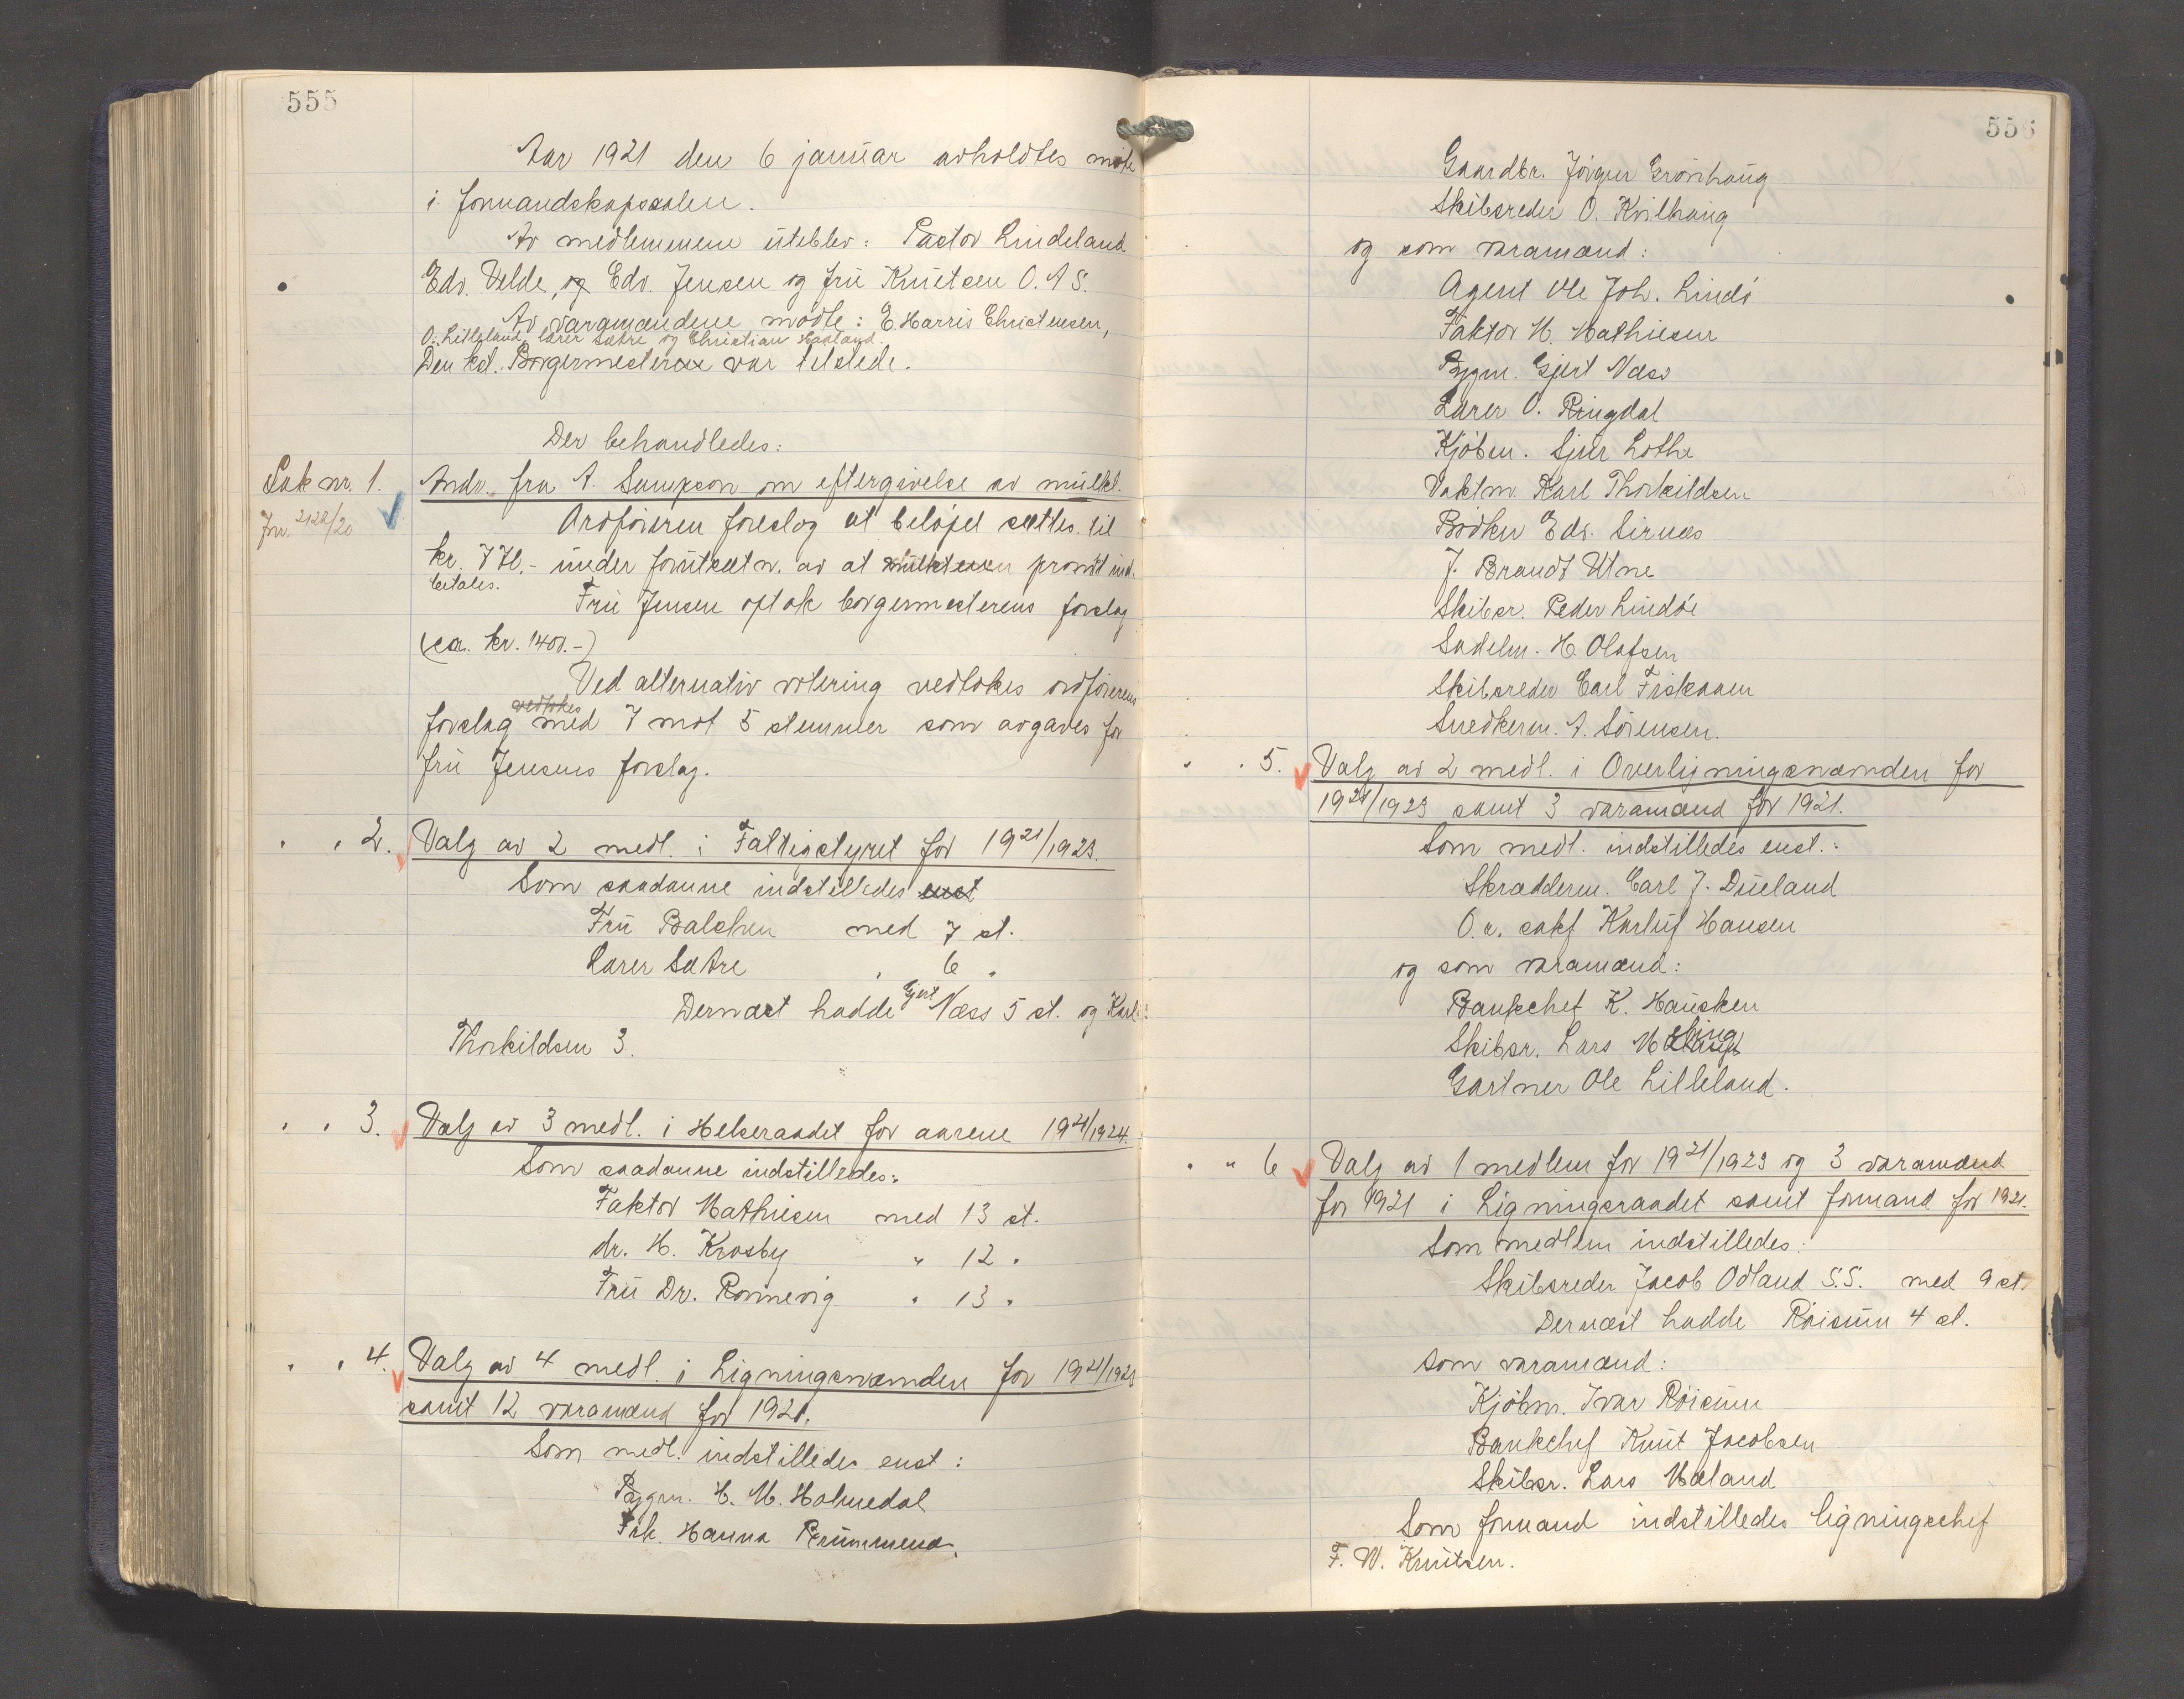 555
Aar 1921 den 6 januar avholdtes møte
i formandskapssalen.
Av medlemmene uteblev: Pastor Lindeland
Edv. Velde, og Edv. Jensen og fru Knutsen O. A S.
Av varamændene møtte: E. Harris Christensen,
O. Lilleland, lærer Sætre og Christian Haaland.
Den kst. Borgermester var tilstede.
Der behandledes:
Sak nr. 1.
Jnr. 2122/20
Andr. fra A. Sampson om eftergivelse av mulkt.
Ordføreren foreslog at beløpet sættes til
kr. 778.- under forutsætn. av at mulkten promt ind-
betales.
Fru Jensen optok borgermesterens forslag
(ca. kr. 1400.-)
Ved alternativ votering vedtokes ordførerens
forslag vedtokes med 7 mot 5 stemmer som avgaves for
fru Jensens forslag.
" " 2. Valg av 2 medl. i Fattigstyret for 1921/1923.
Som saadanne indstilledes enst
Fru Balchen med 7 st.
Lærer Sætre " 6 "
Dernæst hadde Gjert Næss 5 st. og Karl
Thorkildsen 3.
" " 3. Valg av 3 medl. i Helseraadet for aarene 1921/1924.
Som saadanne indstilledes:
Faktor Mathiesen med 13 st.
dr. H. Krosby " 12 "
Fru Dr. Rønnevig " 13 "
" " 4. Valg av 4 medl. i Ligningsnævnden for 1921/1923
samt 12 varamænd for 1921.
Som medl. indstilledes enst:
Bygm. H. M. Holmedal
Frk. Hanna Brummenæs.
556
Gaardbr. Jørgen Grønhaug
Skibsreder O. Kvilhaug
og som varamænd:
Agent Ole Joh. Lindø
Faktor H. Mathiesen
Bygm. Gjert Næss
Lærer O. Ringdal
Kjøbm. Sjur Lothe
Vaktm. Karl Thorkildsen
Bødker Edv. Sirnæs
J. Brandt Utne
Skibsr. Peder Lindøe
Sadelm. H. Olafsen
Skibsreder Carl Fiskaaen
Snedkerm. A. Sørensen.
" " 5. Valg av 2 medl. i Overligningsnævnden for
1921/1923 samt 3 varamænd for 1921.
Som medl. indstilledes enst.:
Skrædderm. Carl J. Dueland
O.r. sakf Karluf Hansen
og som varamænd:
Bankchef K. Hausken
Skibsr. Lars Mæling
Gartner Ole Lilleland.
" " 6 Valg av 1 medlem for 1921/1923 og 3 varamænd
for 1921 i Ligningsraadet samt formand for 1921.
Som medlem indstilledes:
Skibsreder Jacob Odland S.S. med 9 st.
Dernæst hadde Røisum 4 st.
Som varamænd:
Kjøbm. Ivar Røisum
Bankchef Knut Jacobsen
Skibsr. Lars Mæland
Som formand indstilledes ligningschef
F. W. Knutsen.